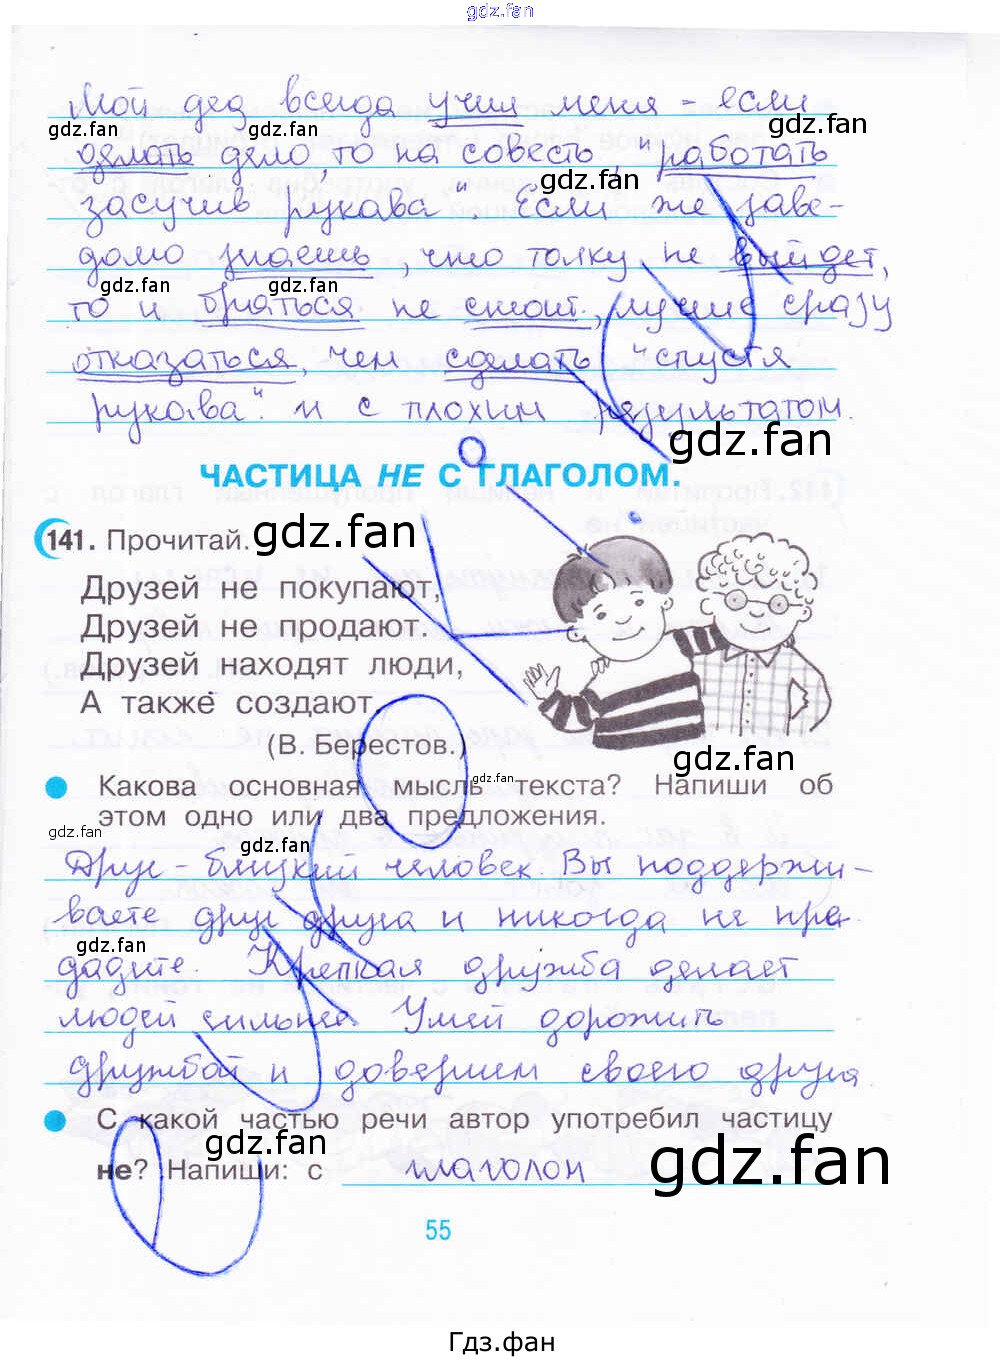 gdz.fan
Мой дед всегда учил меня - если
gdz.fan gdz.fan gdz.fan
делать дело, то на совесть, "работать
gdz.fan
засучив рукава". Если же заве-
домо знаешь, что толку не выйдет,
gdz.fan gdz.fan
то и браться не стоит, лучше сразу
отказаться, чем сделать "спустя
рукава" и с плохим результатом.
gdz.fan
ЧАСТИЦА НЕ С ГЛАГОЛОМ.
141. Прочитай.
gdz.fan
Друзей не покупают,
Друзей не продают.
Друзей находят люди,
А также создают.
(В. Берестов.)
gdz.fan
Какова основная мысль текста? Напиши об
gdz.fan
этом одно или два предложения.
gdz.fan gdz.fan
Друг - близкий человек. Вы поддержи-
ваете друг друга и никогда не пре-
gdz.fan
дадите. Крепкая дружба делает
людей сильнее. Умей дорожить
дружбой и доверием своего друга.
С какой частью речи автор употребил частицу
gdz.fan gdz.fan
не? Напиши: с глаголом
55
Гдз.фан